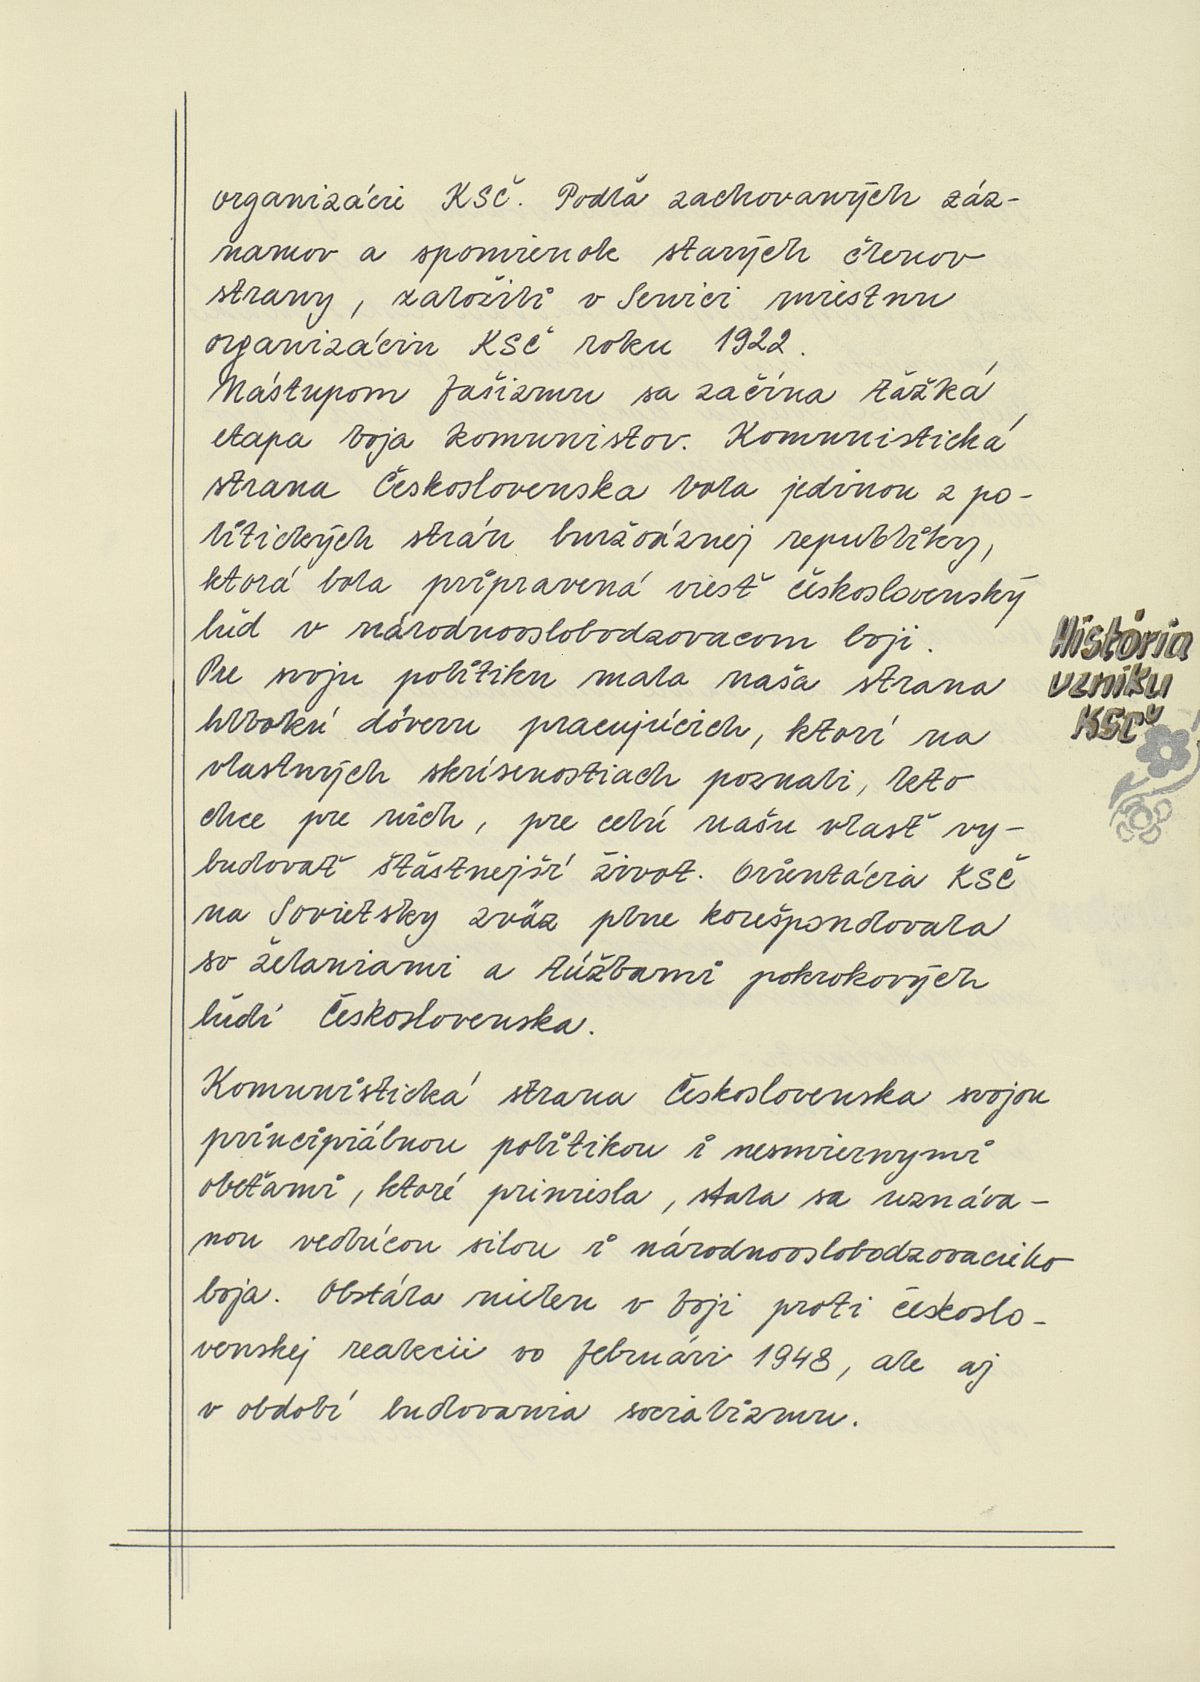 organizácii KSČ. Podľa zachovaných záz-
namov a spomienok starých členov
strany, založili v Senici miestnu
organizáciu KSČ roku 1922.
Nástupom fašizmu sa začína ťažká
etapa boja komunistov. Komunistická
strana Československa bola jedinou z po-
litických strán buržoáznej republiky,
ktorá bola pripravená viesť československý
ľud v národnooslobodzovacom boji.
Pre svoju politiku mala naša strana
hlbokú dôveru pracujúcich, ktorí na
vlastných skúsenostiach poznali, že to
chce pre nich, pre celú našu vlasť vy-
budovať šťastnejší život. Orientácia KSČ
na Sovietsky zväz plne korešpondovala
so želaniami a túžbami pokrokových
ľudí Československa.
Komunistická strana Československa svojou
principiálnou politikou i nesmiernymi
obeťami, ktoré priniesla, stala sa uznáva-
nou vedúcou silou i národnooslobodzovacieho
boja. Obstála nielen v boji proti českoslo-
venskej reakcii vo februári 1948, ale aj
v období budovania socializmu.
História
vzniku
KSČ